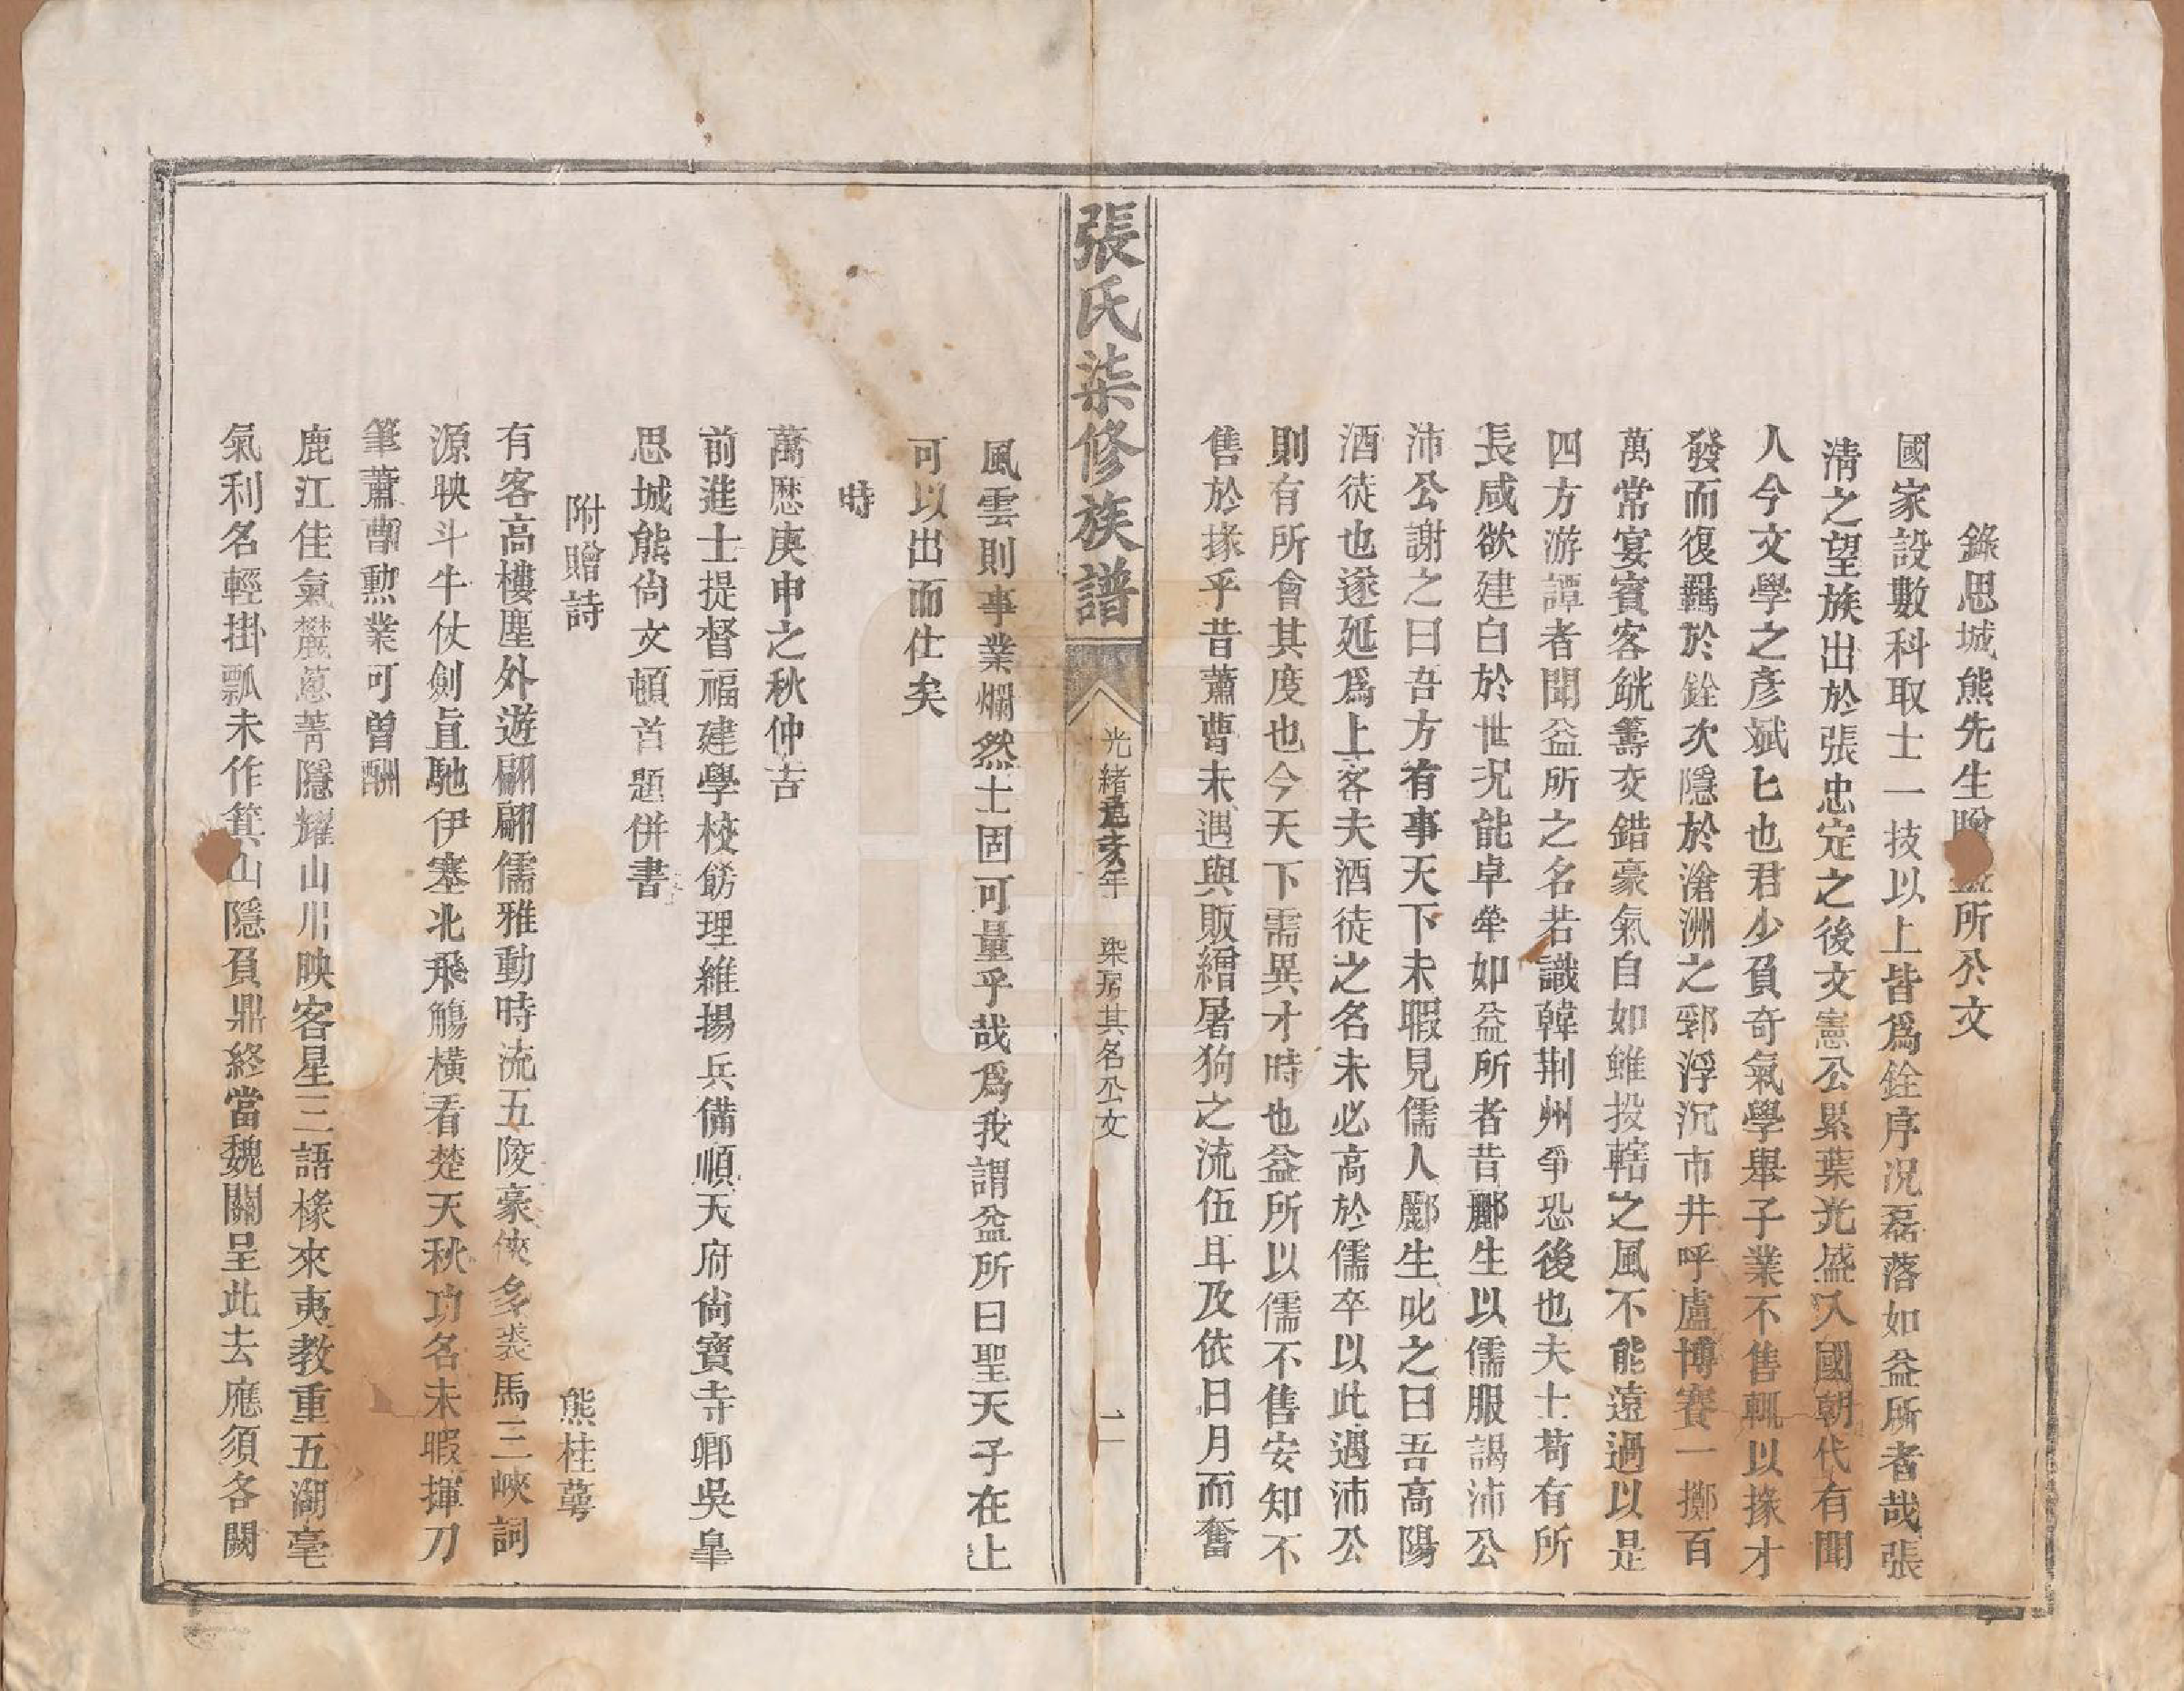 錄思城熊先生贈益所公文
國家設數科取士一技以上皆爲銓序況磊落如益所者哉張
清之望族出於張忠定之後文憲公累葉光盛入國朝代有聞
人今文學之彥斌匕也君少負奇氣學舉子業不售輒以掾才
發而復羈於銓次隱於滄洲之郢浮沉市井呼盧博賽一擲百
萬常宴賓客觥籌交錯豪氣自如雖投轄之風不能遠過以是
四方游譚者聞益所之名若識韓荆州爭恐後也夫士苟有所
長咸欲建白於世況能卓犖如益所者昔酈生以儒服謁沛公
沛公謝之曰吾方有事天下未暇見儒人酈生叱之曰吾高陽
酒徒也遂延爲上客夫酒徒之名未必高於儒卒以此遇沛公
則有所會其度也今天下需異才時也益所以儒不售安知不
售於掾乎昔蕭曹未遇與販繒屠狗之流伍耳及依日月而奮
張氏柒修族譜
光緒己亥年 柒房其名公文 二
風雲則事業爛然士固可量乎哉爲我謂益所曰聖天子在上
可以出而仕矣
時
萬厯庚申之秋仲吉
前進士提督福建學校飭理維揚兵備順天府尙寶寺鄉吳臯
思城熊尙文頓首題併書
附贈詩 熊桂萼
有客高樓塵外遊翩翩儒雅動時流五陵豪俠多裘馬三峽詞
源映斗牛仗劍直馳伊塞北飛觴橫看楚天秋功名未暇揮刀
筆蕭曹勲業可曾酬
鹿江佳氣欎蔥菁隱耀山川映客星三語椽來夷教重五湖亳
氣利名輕掛瓢未作箕山隱負鼎終當魏闕呈此去應須各闕